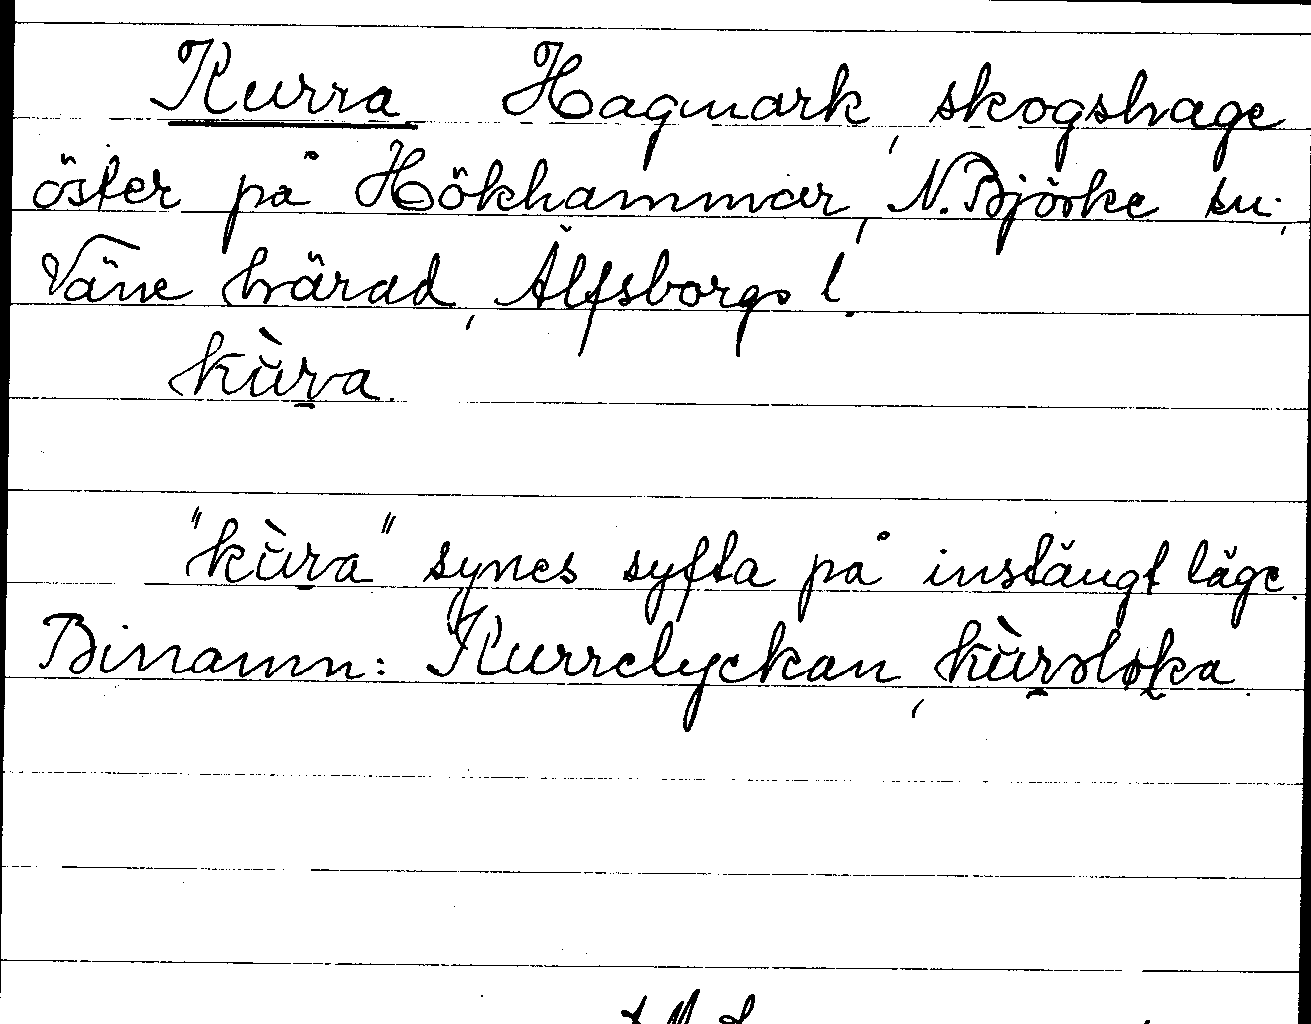 Kurra Hagmark, skogshage
öster på Hökhammar, N. Björke sn,
Väne härad, Älfsborgs l.
kùra.
"kùra" synes syfta på instängt läge.
Binamn: Kurrelyckan,